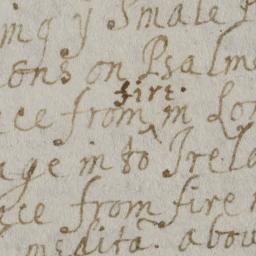 ing y Smale P
ions on Psalm
fire.
ce from ^ in Lon
age in to Irela
ce from fire
medita. abou